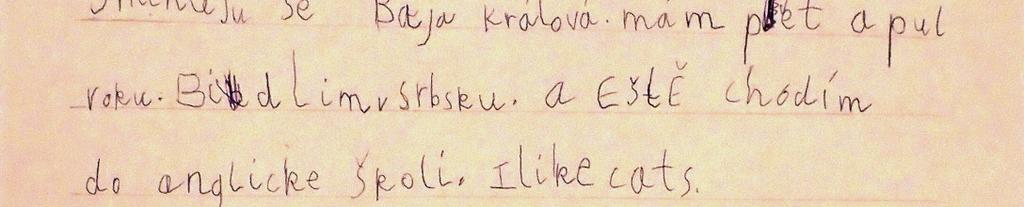 Jmenuju se Baja Králová. mám pět a pul
roku. Bidlim v Srbsku. a EŠtĚ chodím
do anglicke školi. I like cats.